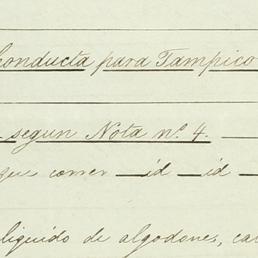 Conducta para Tampico
segun Nota nº 4.
que corren id id
liquido de algodones, ca